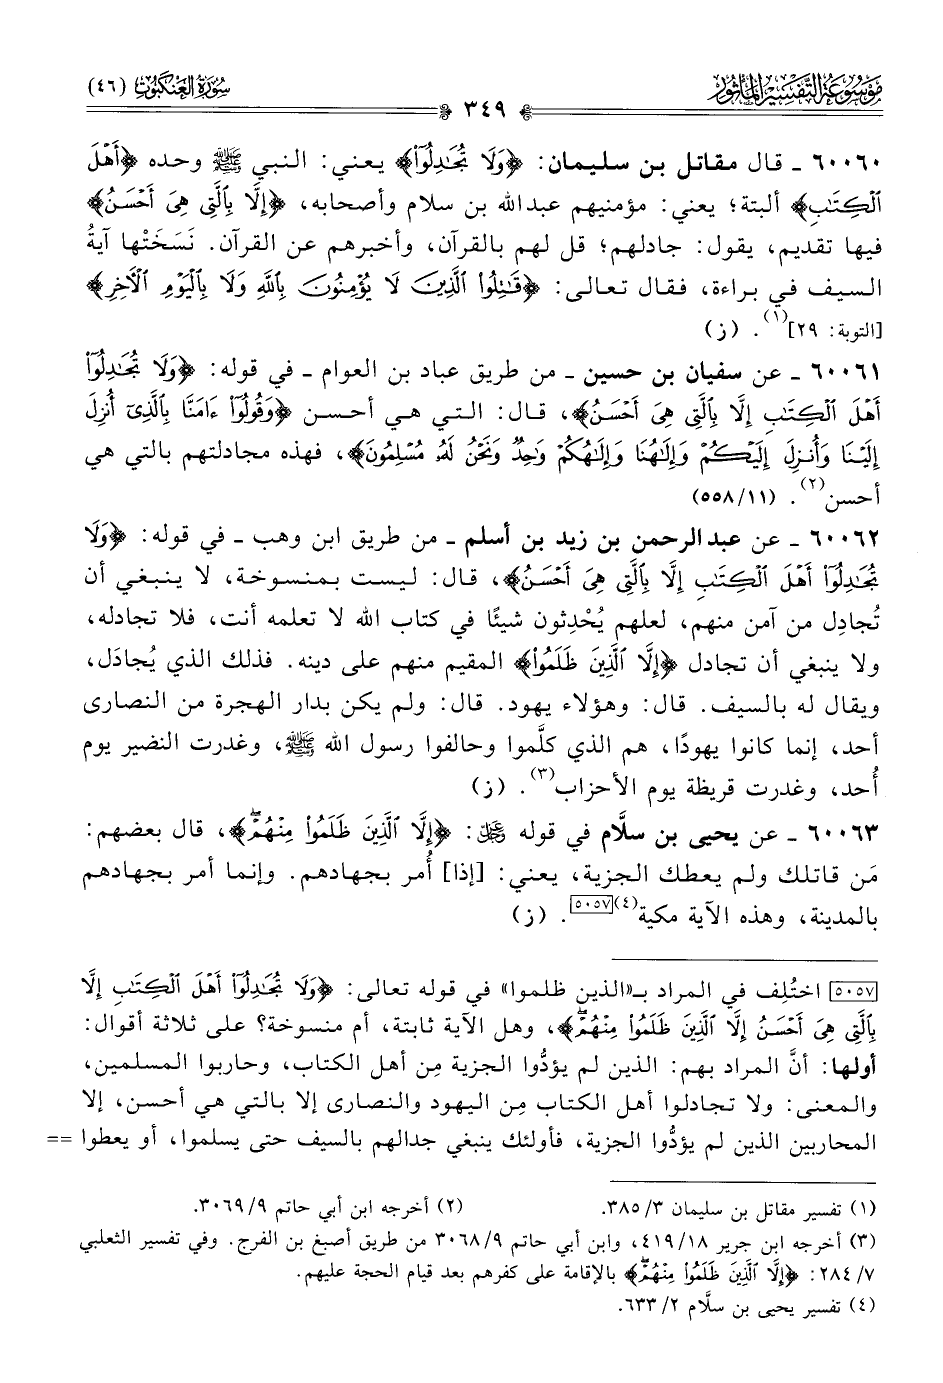 مَوْسُوعَة التَّفْسِير المَأثُور
سُورَة العَنكَبُوت (٤٦)
٣٤٩
٦٠٠٦٠ - قال مقاتل بن سليمان: ﴿وَلَا تُجَٰدِلُوٓاْ﴾ يعني: النبي ﷺ وحده ﴿أَهْلَ
ٱلْكِتَٰبِ﴾ ألبتة؛ يعني: مؤمنيهم عبد الله بن سلام وأصحابه، ﴿إِلَّا بِٱلَّتِي هِيَ أَحْسَنُ﴾
فيها تقديم، يقول: جادلهم؛ قل لهم بالقرآن، وأخبرهم عن القرآن. نَسَخَتْها آيةُ
السيف في براءة، فقال تعالى: ﴿قَٰتِلُواْ ٱلَّذِينَ لَا يُؤْمِنُونَ بِٱللَّهِ وَلَا بِٱلْيَوْمِ ٱلْأٓخِرِ﴾
[التوبة: ٢٩](١). (ز)
٦٠٠٦١ - عن سفيان بن حسين - من طريق عباد بن العوام - في قوله: ﴿وَلَا تُجَٰدِلُوٓاْ
أَهْلَ ٱلْكِتَٰبِ إِلَّا بِٱلَّتِي هِيَ أَحْسَنُ﴾، قال: التي هي أحسن ﴿وَقُولُوٓاْ ءَامَنَّا بِٱلَّذِيٓ أُنزِلَ
إِلَيْنَا وَأُنزِلَ إِلَيْكُمْ وَإِلَٰهُنَا وَإِلَٰهُكُمْ وَٰحِدٌ وَنَحْنُ لَهُۥ مُسْلِمُونَ﴾، فهذه مجادلتهم بالتي هي
أحسن(٢). (٥٥٨/١١)
٦٠٠٦٢ - عن عبد الرحمن بن زيد بن أسلم - من طريق ابن وهب - في قوله: ﴿وَلَا
تُجَٰدِلُوٓاْ أَهْلَ ٱلْكِتَٰبِ إِلَّا بِٱلَّتِي هِيَ أَحْسَنُ﴾، قال: ليست بمنسوخة، لا ينبغي أن
تُجادِل من آمن منهم، لعلهم يُحْدِثون شيئًا في كتاب الله لا تعلمه أنت، فلا تجادله،
ولا ينبغي أن تجادل ﴿إِلَّا ٱلَّذِينَ ظَلَمُواْ﴾ المقيم منهم على دينه. فذلك الذي يُجادَل،
ويقال له بالسيف. قال: وهؤلاء يهود. قال: ولم يكن بدار الهجرة من النصارى
أحد، إنما كانوا يهودًا، هم الذي كلَّموا وحالفوا رسول الله ﷺ، وغدرت النضير يوم
أُحد، وغدرت قريظة يوم الأحزاب(٣). (ز)
٦٠٠٦٣ - عن يحيى بن سلَّام في قوله ﷿: ﴿إِلَّا ٱلَّذِينَ ظَلَمُواْ مِنْهُمْ﴾، قال بعضهم:
مَن قاتلك ولم يعطك الجزية، يعني: [إذا] أُمر بجهادهم. وإنما أمر بجهادهم
بالمدينة، وهذه الآية مكية(٤)[٥٠٥٧]. (ز)
[٥٠٥٧] اختُلِف في المراد بـ«الذين ظلموا» في قوله تعالى: ﴿وَلَا تُجَٰدِلُوٓاْ أَهْلَ ٱلْكِتَٰبِ إِلَّا
بِٱلَّتِي هِيَ أَحْسَنُ إِلَّا ٱلَّذِينَ ظَلَمُواْ مِنْهُمْ﴾، وهل الآية ثابتة، أم منسوخة؟ على ثلاثة أقوال:
أولها: أنَّ المراد بهم: الذين لم يؤدُّوا الجزية مِن أهل الكتاب، وحاربوا المسلمين،
والمعنى: ولا تجادلوا أهل الكتاب مِن اليهود والنصارى إلا بالتي هي أحسن، إلا
المحاربين الذين لم يؤدُّوا الجزية، فأولئك ينبغي جدالهم بالسيف حتى يسلموا، أو يعطوا ==
(١) تفسير مقاتل بن سليمان ٣/ ٣٨٥. (٢) أخرجه ابن أبي حاتم ٩/ ٣٠٦٩.
(٣) أخرجه ابن جرير ١٨/ ٤١٩، وابن أبي حاتم ٩/ ٣٠٦٨ من طريق أصبغ بن الفرج. وفي تفسير الثعلبي
٧/ ٢٨٤: ﴿إِلَّا ٱلَّذِينَ ظَلَمُواْ مِنْهُمْ﴾ بالإقامة على كفرهم بعد قيام الحجة عليهم.
(٤) تفسير يحيى بن سلَّام ٢/ ٦٣٣.